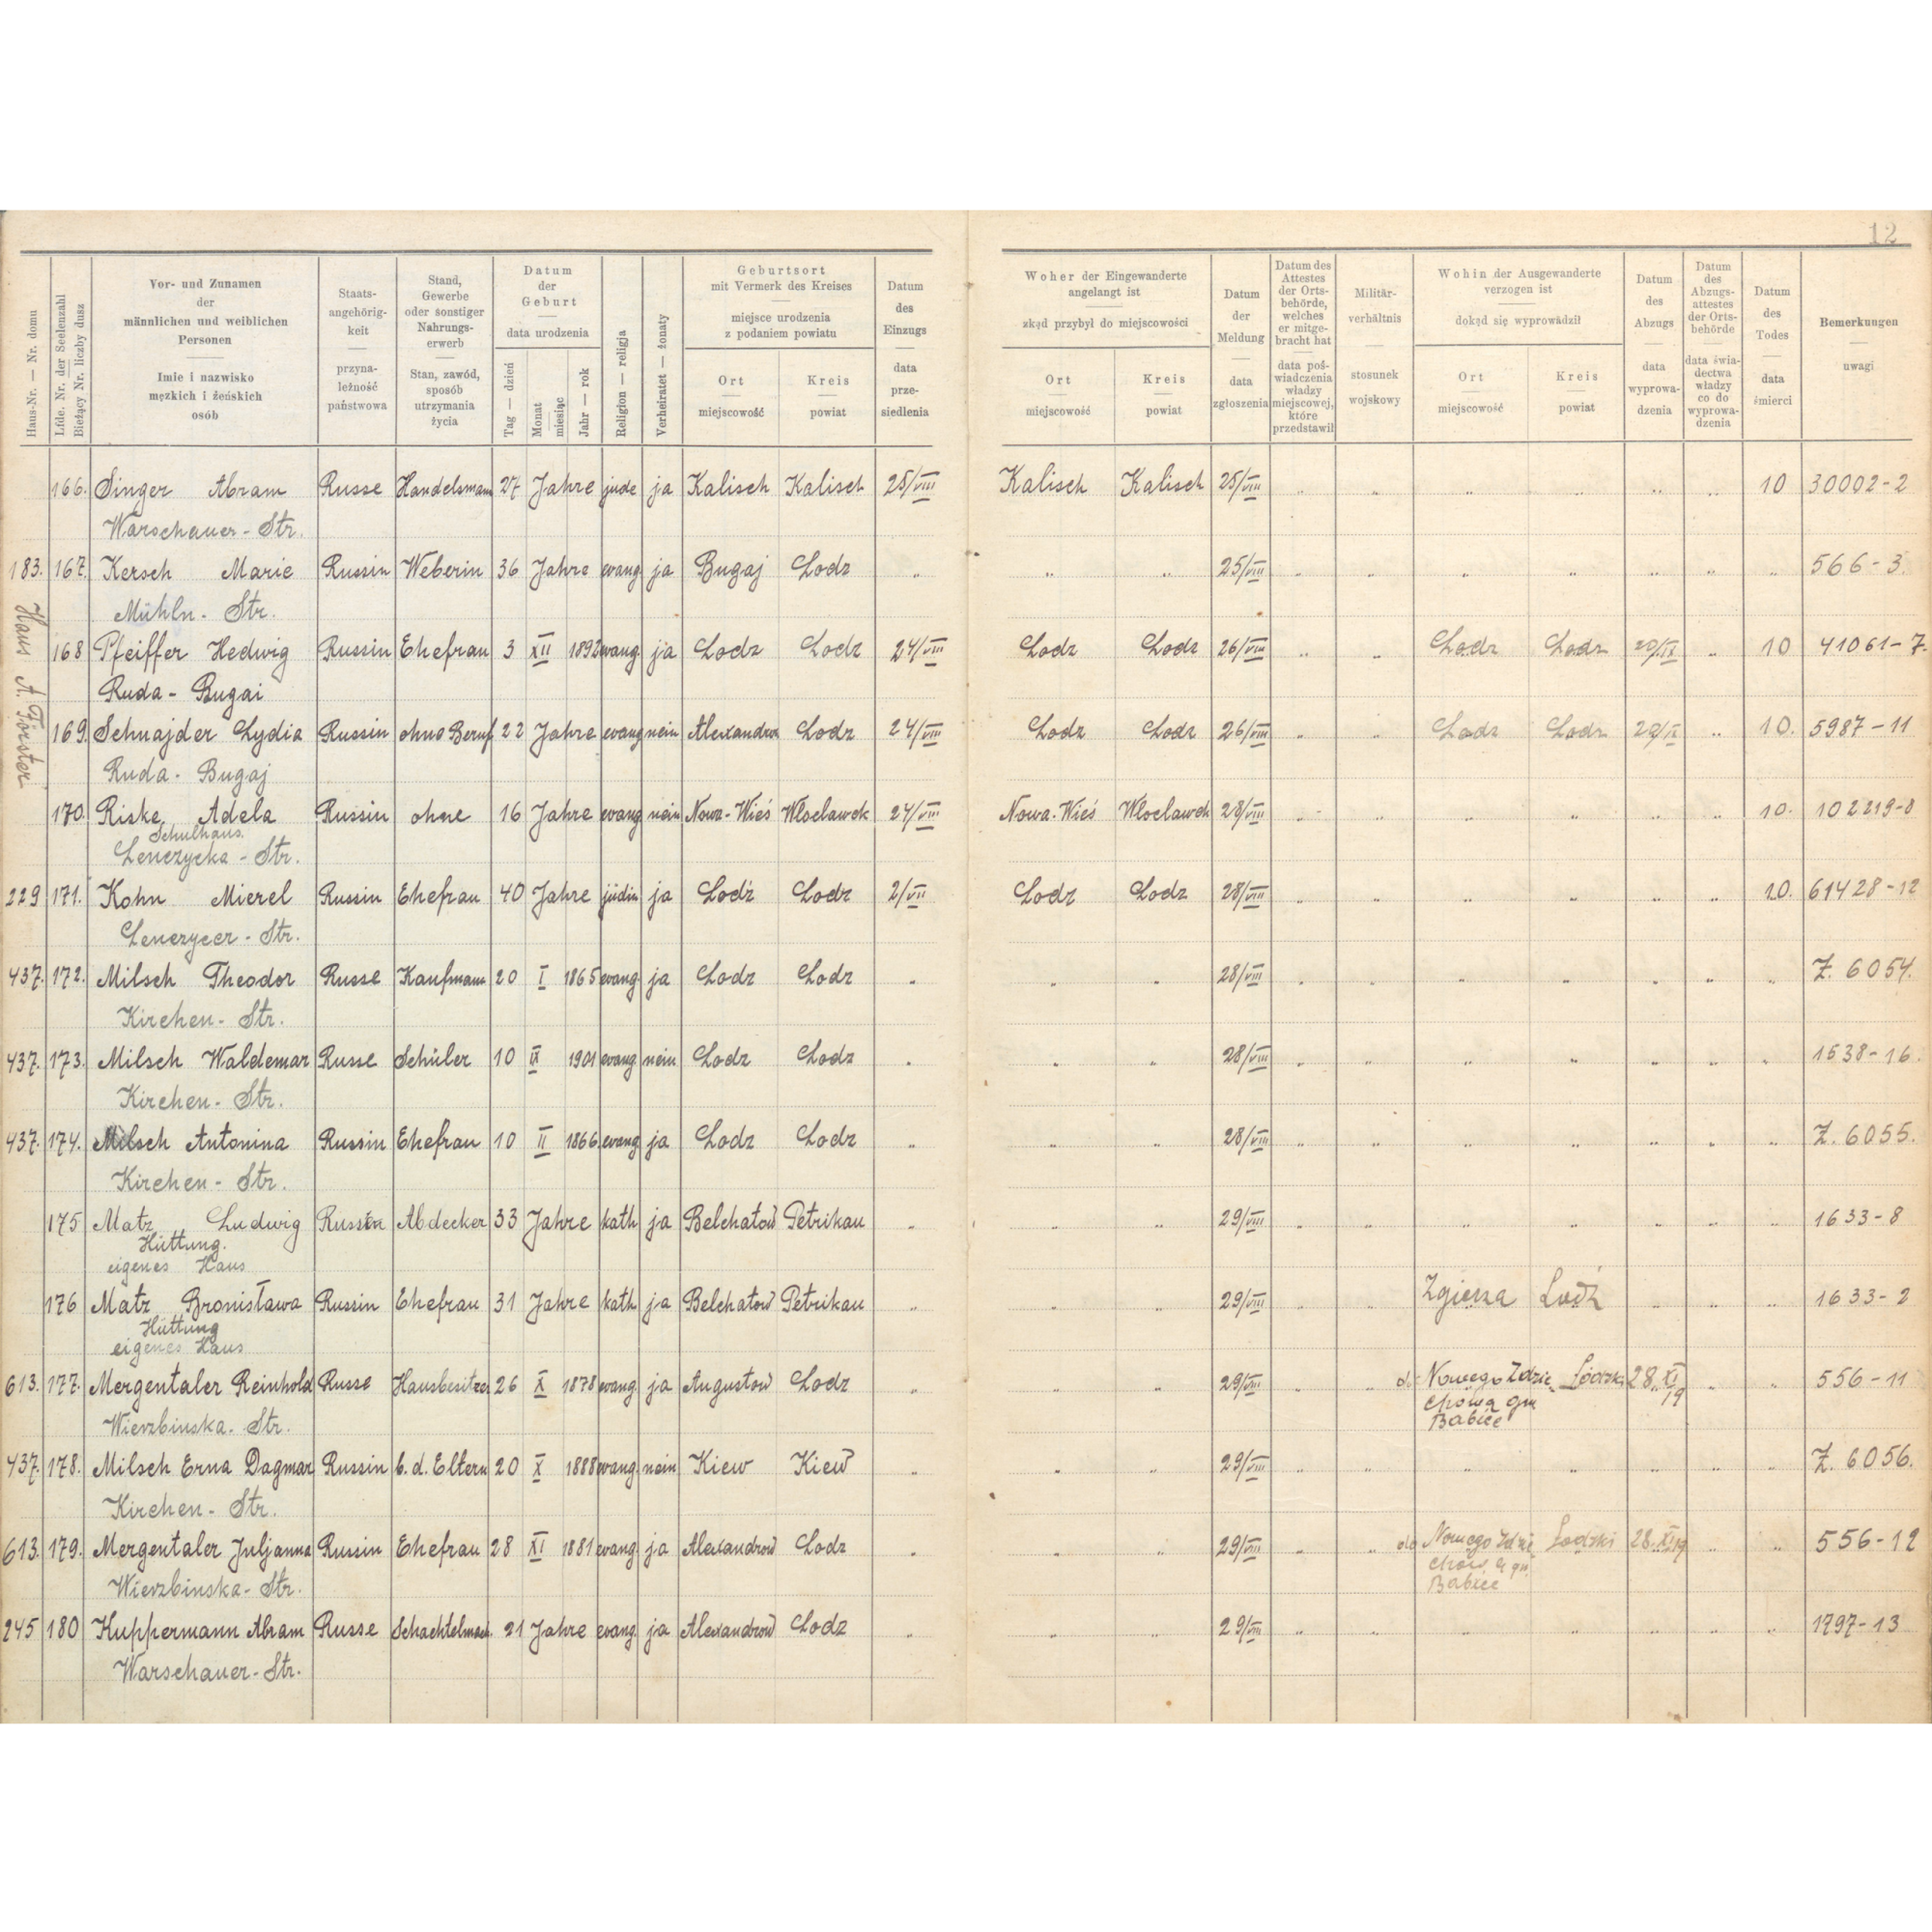 12
Haus-Nr. — Nr. domu
Lfde. Nr. der Seelenzahl
Bieżący Nr. liczby dusz
Vor- und Zunamen
der
männlichen und weiblichen
Personen
Imie i nazwisko
męzkich i żeńskich
osób
Staats-
angehörig-
keit
przyna-
leżność
państwowa
Stand,
Gewerbe
oder sonstiger
Nahrungs-
erwerb
Stan, zawód,
sposób
utrzymania
życia
Datum
der
Geburt
data urodzenia
Tag — dzień
Monat
miesiąc
Jahr — rok
Religion — religja
Verheiratet — żonaty
Geburtsort
mit Vermerk des Kreises
miejsce urodzenia
z podaniem powiatu
Ort
miejscowość
Kreis
powiat
Datum
des
Einzugs
data
prze-
siedlenia
Woher der Eingewanderte
angelangt ist
zkąd przybył do miejscowości
Ort
miejscowość
Kreis
powiat
Datum
der
Meldung
data
zgłoszenia
Datum des
Attestes
der Orts-
behörde,
welches
er mitge-
bracht hat
data poś-
wiadczenia
władzy
miejscowej,
które
przedstawił
Militär-
verhältnis
stosunek
wojskowy
Wohin der Ausgewanderte
verzogen ist
dokąd się wyprowadził
Ort
miejscowość
Kreis
powiat
Datum
des
Abzugs
data
wyprowa-
dzenia
Datum
des
Abzugs-
attestes
der Orts-
behörde
data świa-
dectwa
władzy
co do
wyprowa-
dzenia
Datum
des
Todes
data
śmierci
Bemerkungen
uwagi
166. Singer Abram Russe Handelsmann 27 Jahre jude ja Kalisch Kalisch 25/VIII Kalisch Kalisch 25/VIII „ „ „ „ „ „ 10 30002-2
Warschauer-Str.
183. 167. Kersch Marie Russin Weberin 36 Jahre evang ja Bugaj Lodz „ „ „ 25/VIII „ „ „ „ „ „ „ 566-3.
Mühln-Str.
Haus A. Förster
168 Pfeiffer Hedwig Russin Ehefrau 3 XII 1892 evang ja Lodz Lodz 24/VIII Lodz Lodz 26/VIII „ „ Lodz Lodz 20/IX „ 10 41061-7.
Ruda-Bugai
169. Schnajder Lydia Russin ohne Beruf 22 Jahre evang nein Alexandrow Lodz 24/VIII Lodz Lodz 26/VIII „ „ Lodz Lodz 20/IX „ 10. 5987-11
Ruda-Bugaj
170. Riske Adela Russin ohne 16 Jahre evang nein Nowa-Wieś Wloclawek 24/VIII Nowa-Wieś Wloclawek 28/VIII „ „ „ „ „ „ 10. 102219-8
Schulhaus.
Lenczycka-Str.
229 171. Kohn Mierel Russin Ehefrau 40 Jahre jüdin ja Lodz Lodz 2/VII Lodz Lodz 28/VIII „ „ „ „ „ „ 10. 61428-12
Lenczycer-Str.
437. 172. Milsch Theodor Russe Kaufmann 20 I 1865 evang. ja Lodz Lodz „ „ „ 28/VIII „ „ „ „ „ „ „ Z. 6054.
Kirchen-Str.
437. 173. Milsch Waldemar Russe Schüler 10 IX 1901 evang nein Lodz Lodz „ „ „ 28/VIII „ „ „ „ „ „ „ 1538-16.
Kirchen-Str.
437. 174. Milsch Antonina Russin Ehefrau 10 II 1866 evang ja Lodz Lodz „ „ „ 28/VIII „ „ „ „ „ „ „ Z. 6055.
Kirchen-Str.
175 Matz Ludwig Russe Abdecker 33 Jahre kath ja Belchatow Petrikau „ „ „ 29/VIII „ „ „ „ „ „ „ 1633-8
Hüttung.
eigenes Haus
176 Matz Bronisława Russin Ehefrau 31 Jahre kath ja Belchatow Petrikau „ „ „ 29/VIII „ „ Zgierza Lodź „ „ „ 1633-2
Hüttung
eigenes Haus
613. 177. Mergentaler Reinhold Russe Hausbesitzer 26 X 1878 evang. ja Augustow Lodz „ „ „ 29/VIII „ do Nowego Zdzie- Łódzki 28.XI 19 „ „ 556-11
chowa gm
Babice
Wierzbinska-Str.
437. 178. Milsch Erna Dagmar Russin b. d. Eltern 20 X 1888 evang. nein Kiew Kiew „ „ „ 29/VIII „ „ „ „ „ „ „ Z. 6056.
Kirchen-Str.
613. 179. Mergentaler Juljanna Russin Ehefrau 28 XI 1881 evang ja Alexandrow Lodz „ „ „ 29/VIII „ „ do Nowego Zdzie- Lodzki 28.XI 19 „ „ 556-12
chowa gm
Babice
Wierzbinska-Str.
245 180 Kuppermann Abram Russe Schachtelmach. 21 Jahre evang. ja Alexandrow Lodz „ „ „ 29/VIII „ „ „ „ „ „ „ 1797-13
Warschauer-Str.